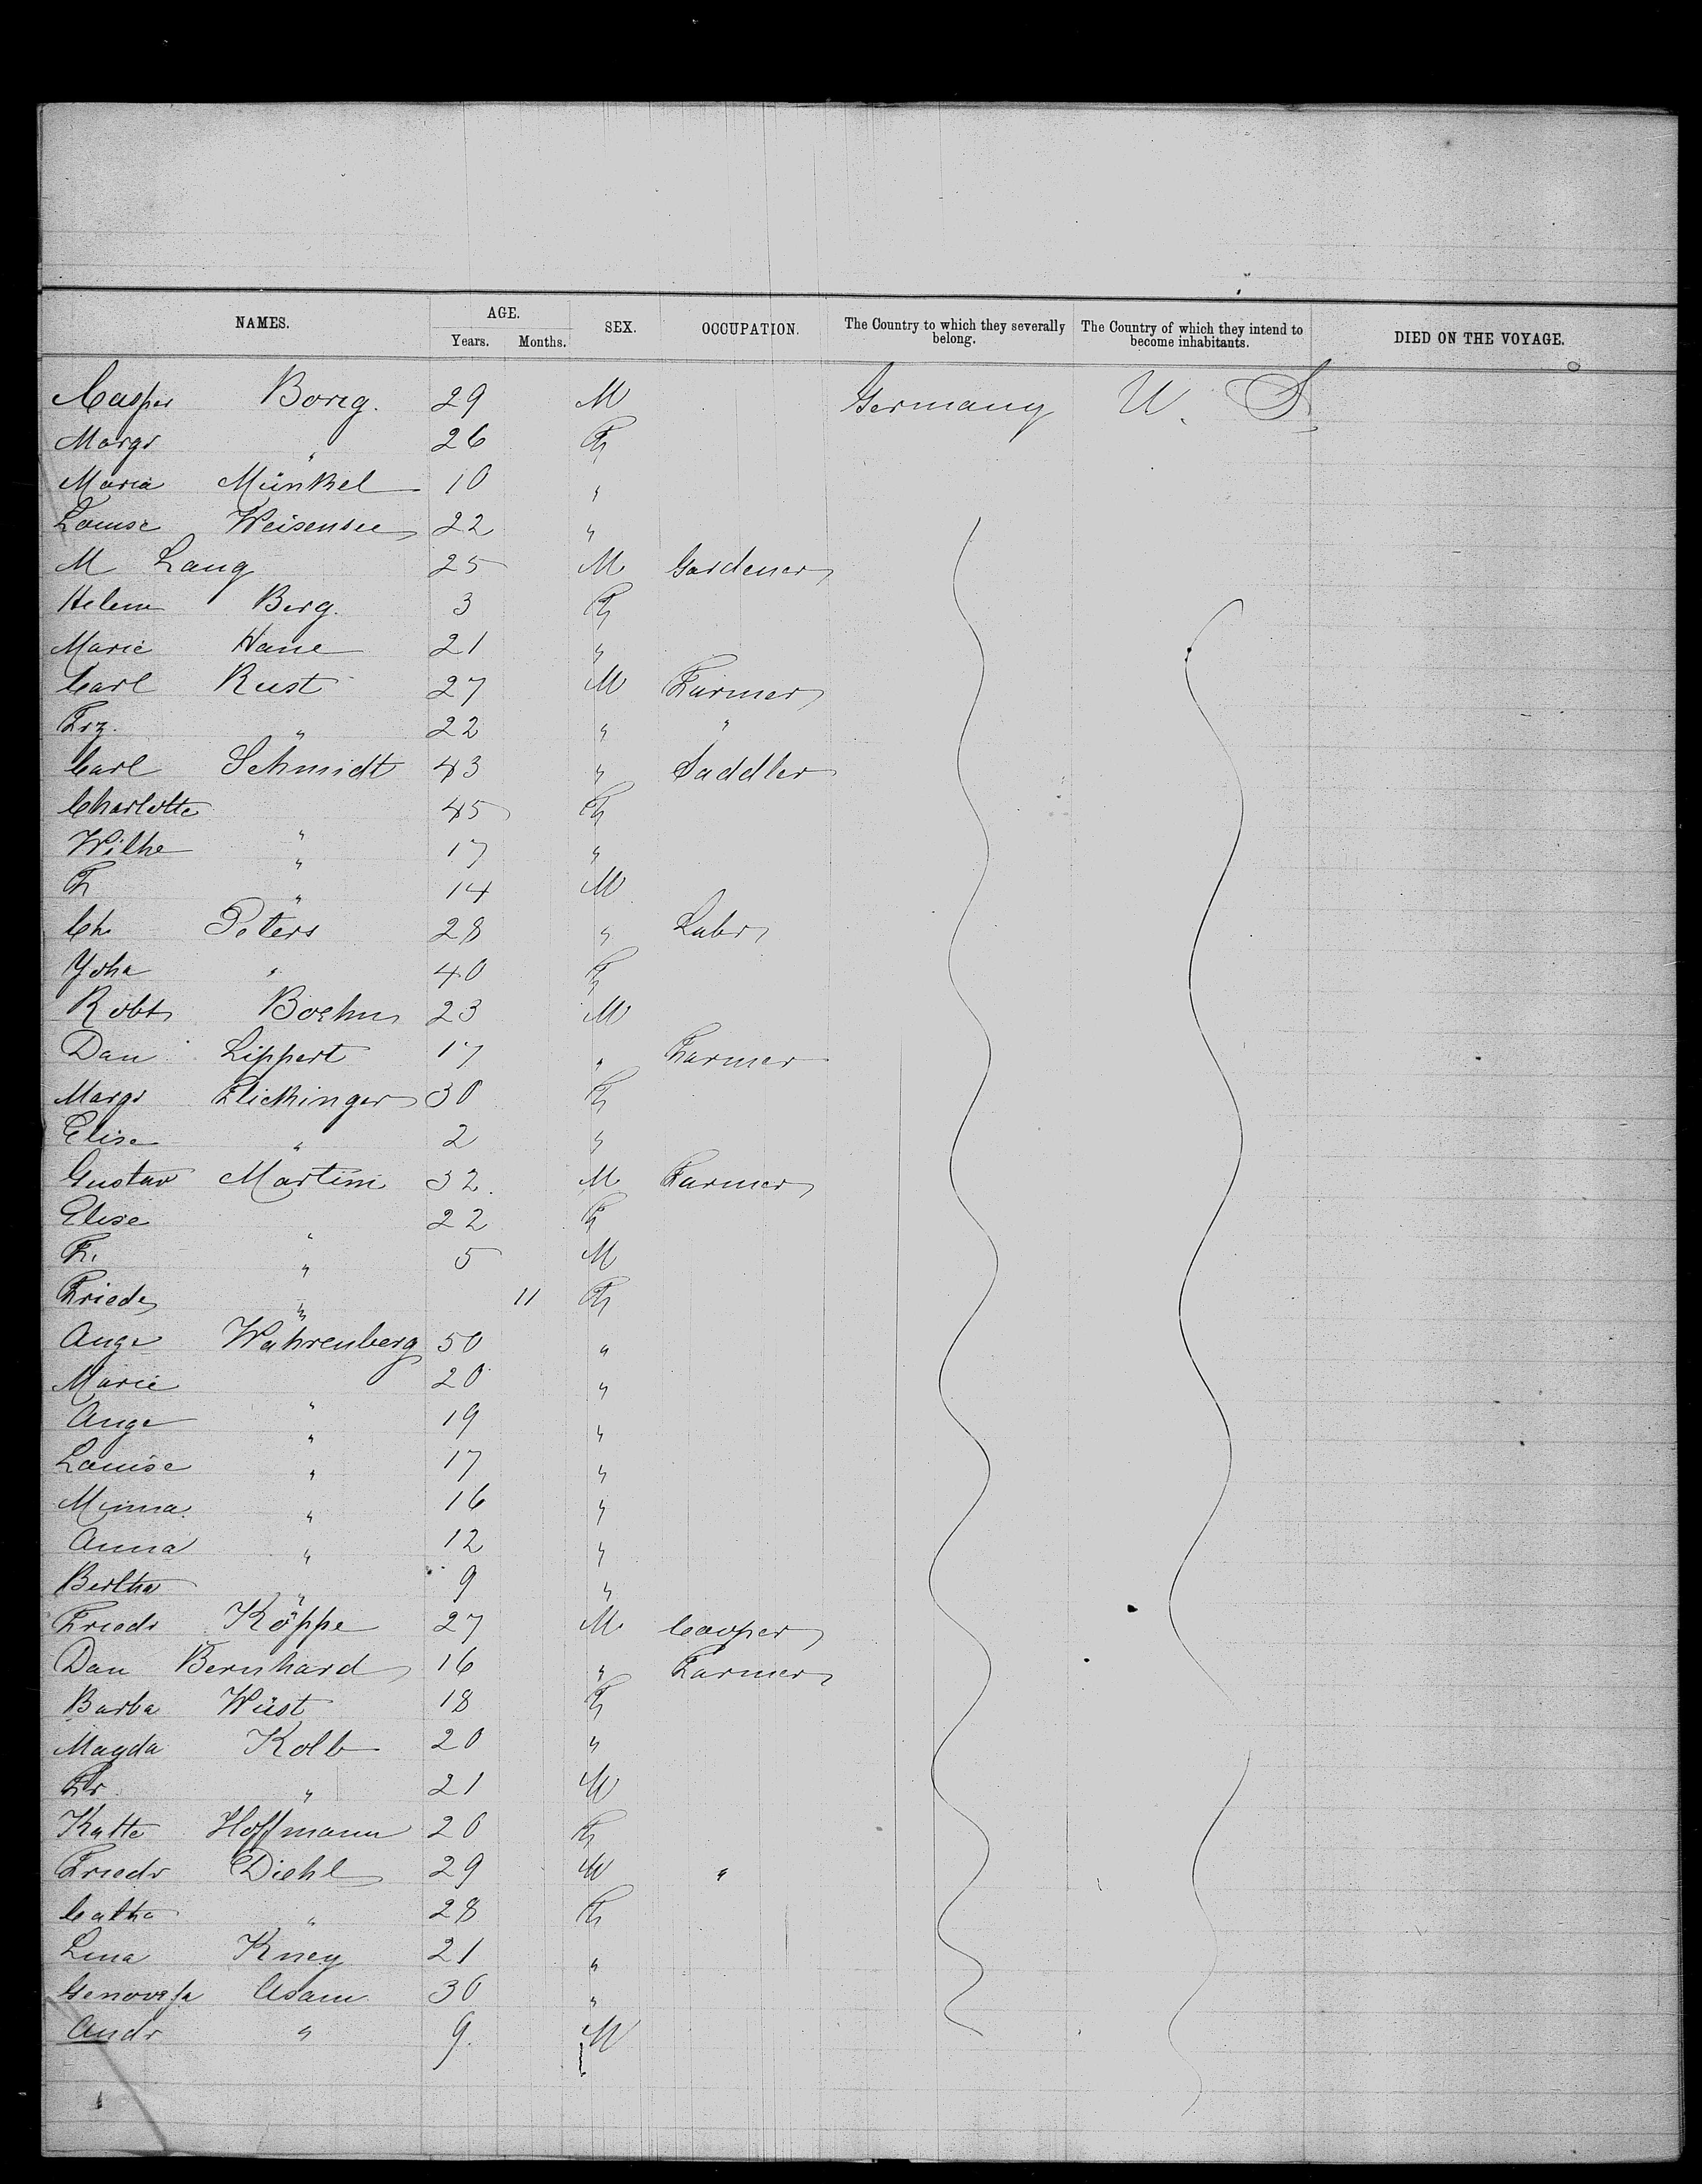 NAMES. AGE. Years. Months. SEX. OCCUPATION. The Country to which they severally belong. The Country of which they intend to become inhabitants. DIED ON THE VOYAGE.
Casper Borig. 29 M Germany U. S.
Margr " 26 F
Maria Münkel 10 "
Louise Weisensee 22 "
M Lang 25 M Gardener
Helene Berg. 3 F
Marie Hane 21 "
Carl Rust 27 M Farmer
Frz. " 22 " "
Carl Schmidt 43 " Saddler
Charlotte " 45 F
Wilhe " 17 "
F " 14 M
Ch Peters 28 " Labr
Joha " 40 F
Robt Boehm 23 M
Dan Lippert 17 " Farmer
Margr Flickinger 30 F
Elise " 2 "
Gustav Martini 32. M Farmer
Elise " 22 F
F. " 5 M
Friede " 11 F
Auge Wahrenberg 50 "
Marie " 20 "
Auge " 19 "
Louise " 17 "
Minna " 16 "
Anna " 12 "
Bertha " 9 "
Friedr Köppe 27 M Cooper
Dan Bernhard 16 " Farmer
Barba Wüst 18 F
Magda Kolb 20 "
Fr " 21 M
Katte Hoffmann 20 F
Friedr Diehl 29 M "
Catha " 28 F
Lina Kney 21 "
Genovefa Asam 30 "
Andr " 9. M